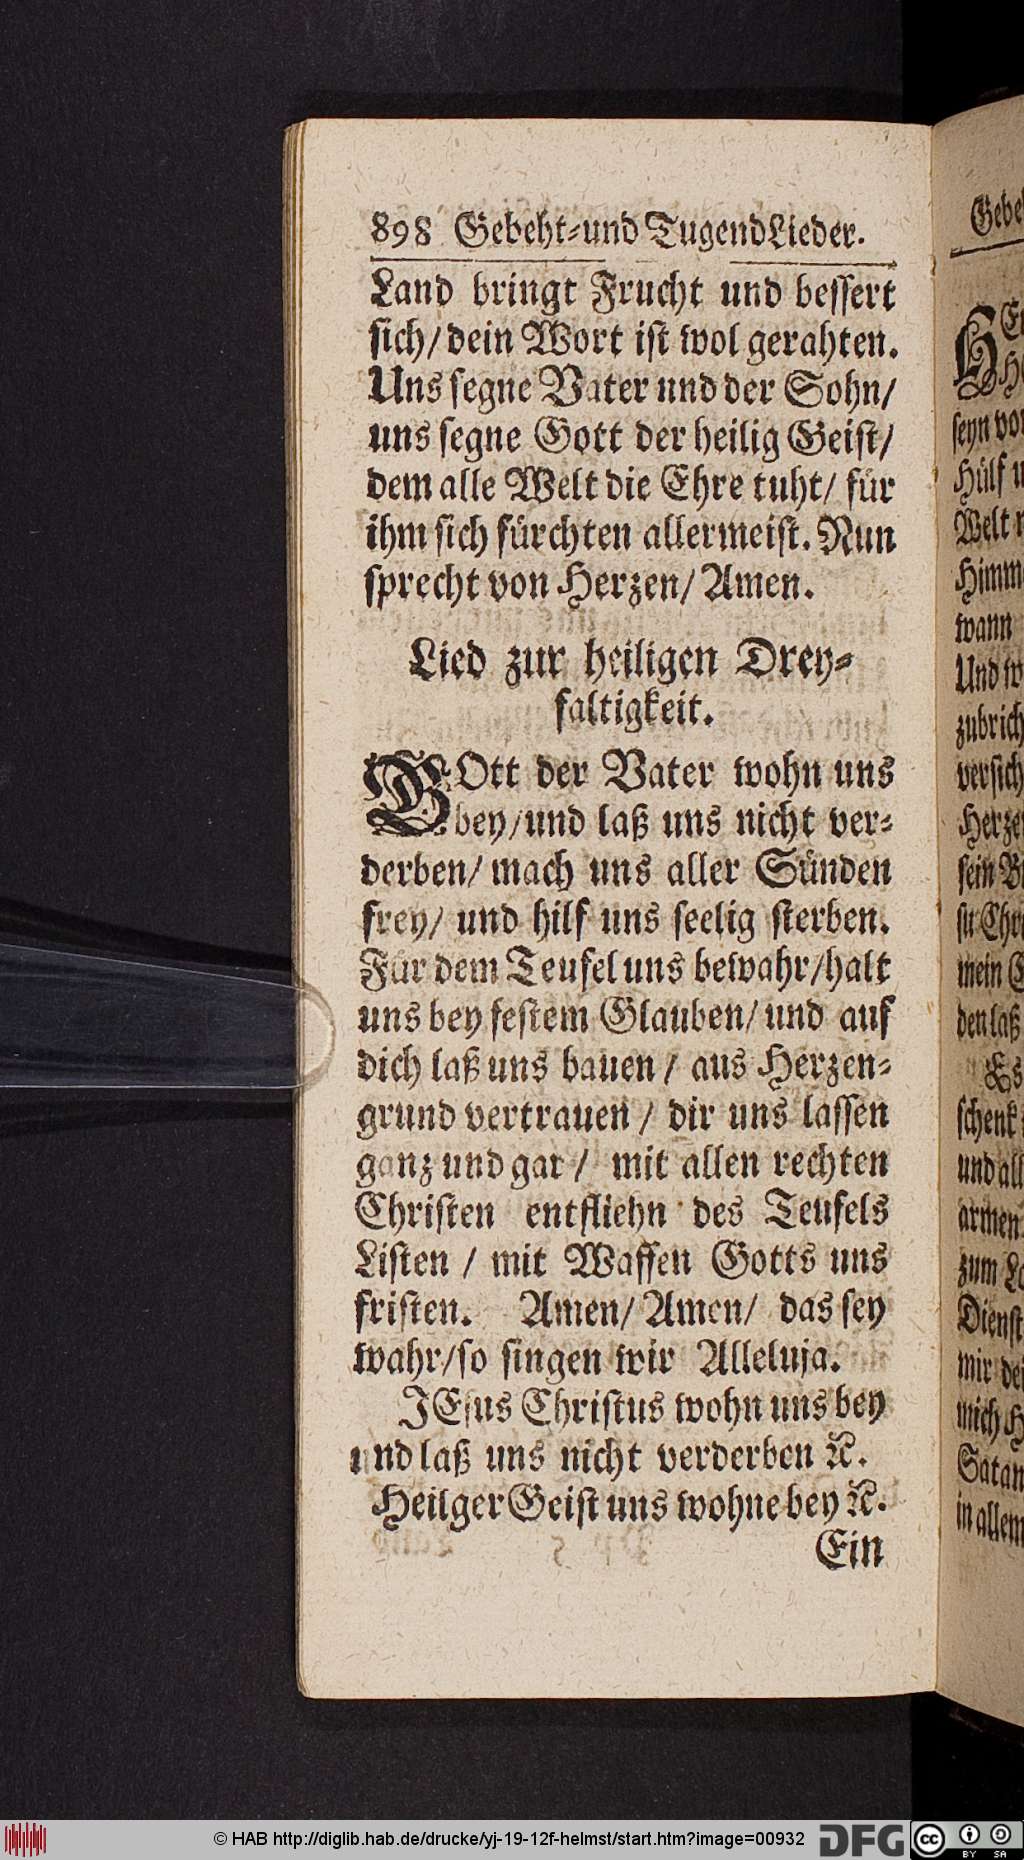 898 Gebeht-und TugendLieder.
Land bringt Frucht und bessert
sich/ dein Wort ist wol gerahten.
Uns segne Vater und der Sohn/
uns segne Gott der heilig Geist/
dem alle Welt die Ehre tuht/ für
ihm sich fürchten allermeist. Nun
sprecht von Herzen/ Amen.
Lied zur heiligen Drey-
faltigkeit.
GOtt der Vater wohn uns
bey/und laß uns nicht ver-
derben/ mach uns aller Sünden
frey/ und hilf uns seelig sterben.
Für dem Teufel uns bewahr/halt
uns bey festem Glauben/ und auf
dich laß uns bauen / aus Herzen-
grund vertrauen / dir uns lassen
ganz und gar / mit allen rechten
Christen entfliehn des Teufels
Listen / mit Waffen Gotts uns
fristen. Amen/ Amen/ das sey
wahr/so singen wir Alleluja.
JEsus Christus wohn uns bey
und laß uns nicht verderben ꝛc.
Heilger Geist uns wohne bey ꝛc.
Ein
seyn
Hülf
Welt
wann
Und
Herze
sein
mein
den laß
Es
schenk
und
armen
zum
Dienst
mir
mich
Satan
in allem
© HAB http://diglib.hab.de/drucke/yj-19-12f-helmst/start.htm?image=00932 DFG cc BY SA